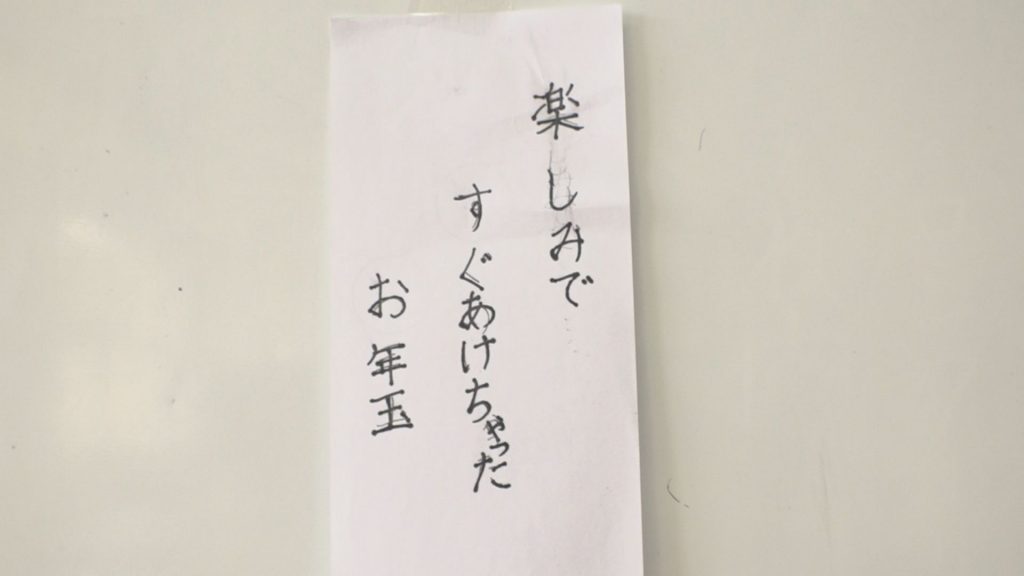 楽しみで
すぐあけちゃった
お年玉